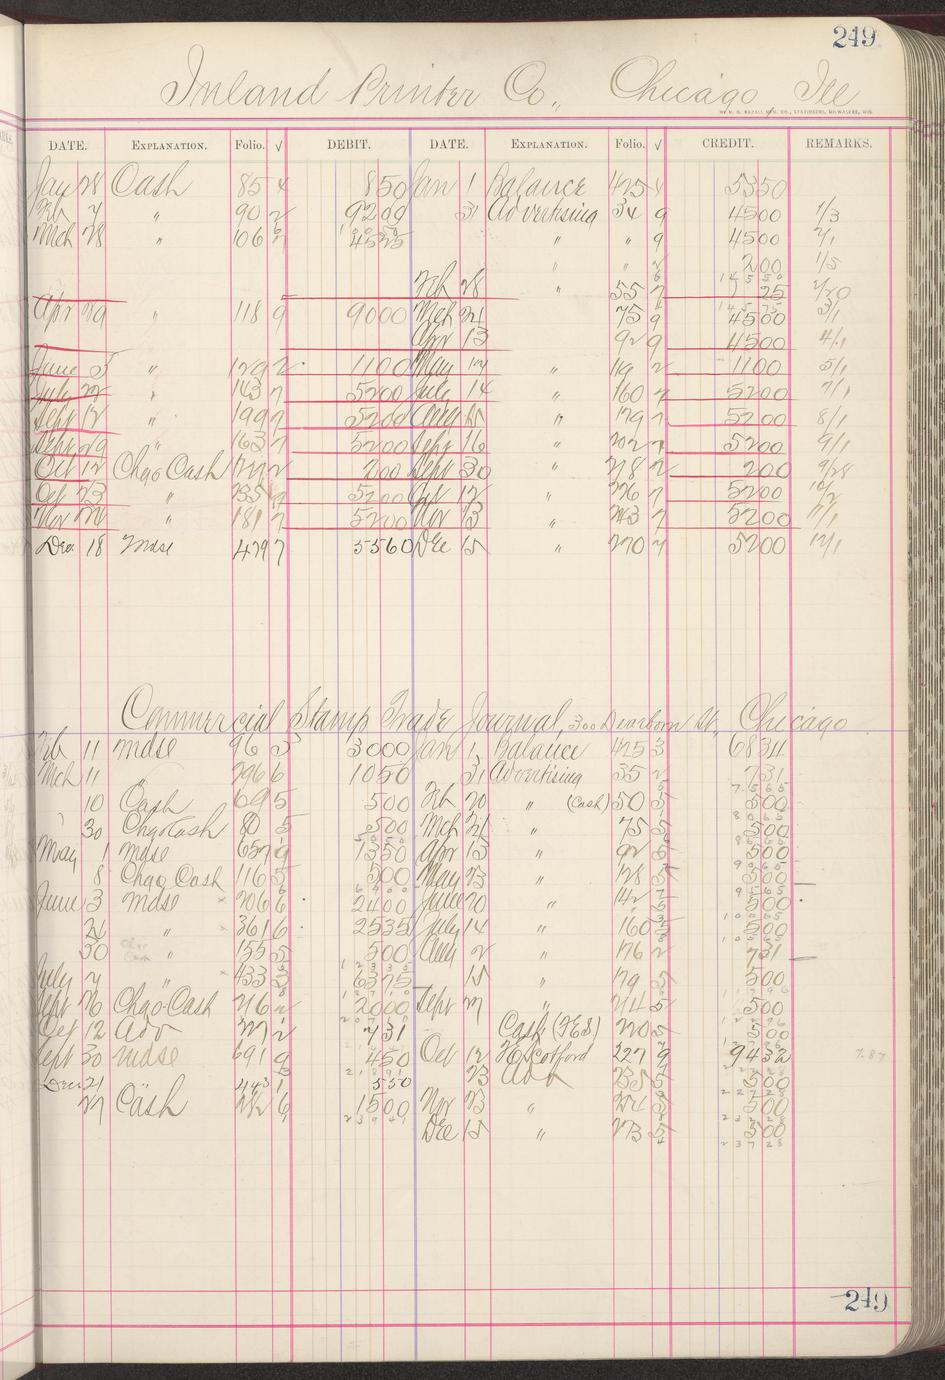 249
Inland Printer Co., Chicago Ill
DATE. EXPLANATION. Folio. √ DEBIT. DATE. EXPLANATION. Folio. √ CREDIT. REMARKS.
Jan 28 Cash 85 4 850 Jan 1 Balance 425 4 5350
Feb 7 " 90 2 9200 31 Advertising 34 9 4500 1/3
Mch 28 " 106 7 4525 " " 9 4500 2/1
" " 2 200 1/5
Feb 28 " 55 7 25 2/20
Apr 29 " 118 9 9000 Mch 21 75 9 4500 3/1
Apr 13 92 9 4500 4/1
June 5 " 129 2 1100 May 17 " 119 2 1100 5/1
July 22 " 143 7 5200 July 14 160 7 5200 7/1
Sept 12 " 199 7 5200 Aug 15 " 179 7 5200 8/1
Sept 29 " 163 7 5200 Sept 16 " 202 7 5200 9/1
Oct 12 Chgo Cash 722 2 200 Sept 30 " 218 2 200 9/28
Oct 23 " 235 9 5200 Oct 12 " 226 7 5200 10/2
Nov 22 " 181 7 5200 Nov 13 " 243 7 5200 11/1
Dec. 18 Mdse 479 7 5560 Dec 15 " 270 7 5200 12/1
Commercial Stamp Trade Journal, 300 Dearborn St., Chicago
Feb 11 Mdse 96 5 3000 Jan 1, Balance 425 3 6834
Mch 11 " 296 6 1050 31 Advertising 35 2 731
10 Cash 69 5 500 Feb 20 " (Cash) 50 5 500
30 Chgo Cash 80 5 500 Mch 21 " 75 5 500
May 1 Mdse 657 9 1350 Apr 13 " 92 5 500
8 Chgo Cash 116 5 500 May 23 " 128 5 500
June 3 Mdse 206 6 2400 June 20 142 5 500
24 " 361 6 2535 July 14 " 160 5 500
30 " 155 5 500 Aug 2 " 176 2 731
July 7 " 433 3 6375 15 179 5 500
Sept 26 Chgo Cash 216 2 2000 Sept 7 " 214 5 500
Oct 12 Adv 227 2 731 Cash (HES) 220 5 500
Sept 30 Mdse 691 9 450 Oct 12 H. Scofford 227 9 9432
Dec 21 443 1 550 23 Adv 235 5 500
27 Cash 212 6 1500 Nov 13 " 244 5 500
Dec 15 " 273 5 500
249